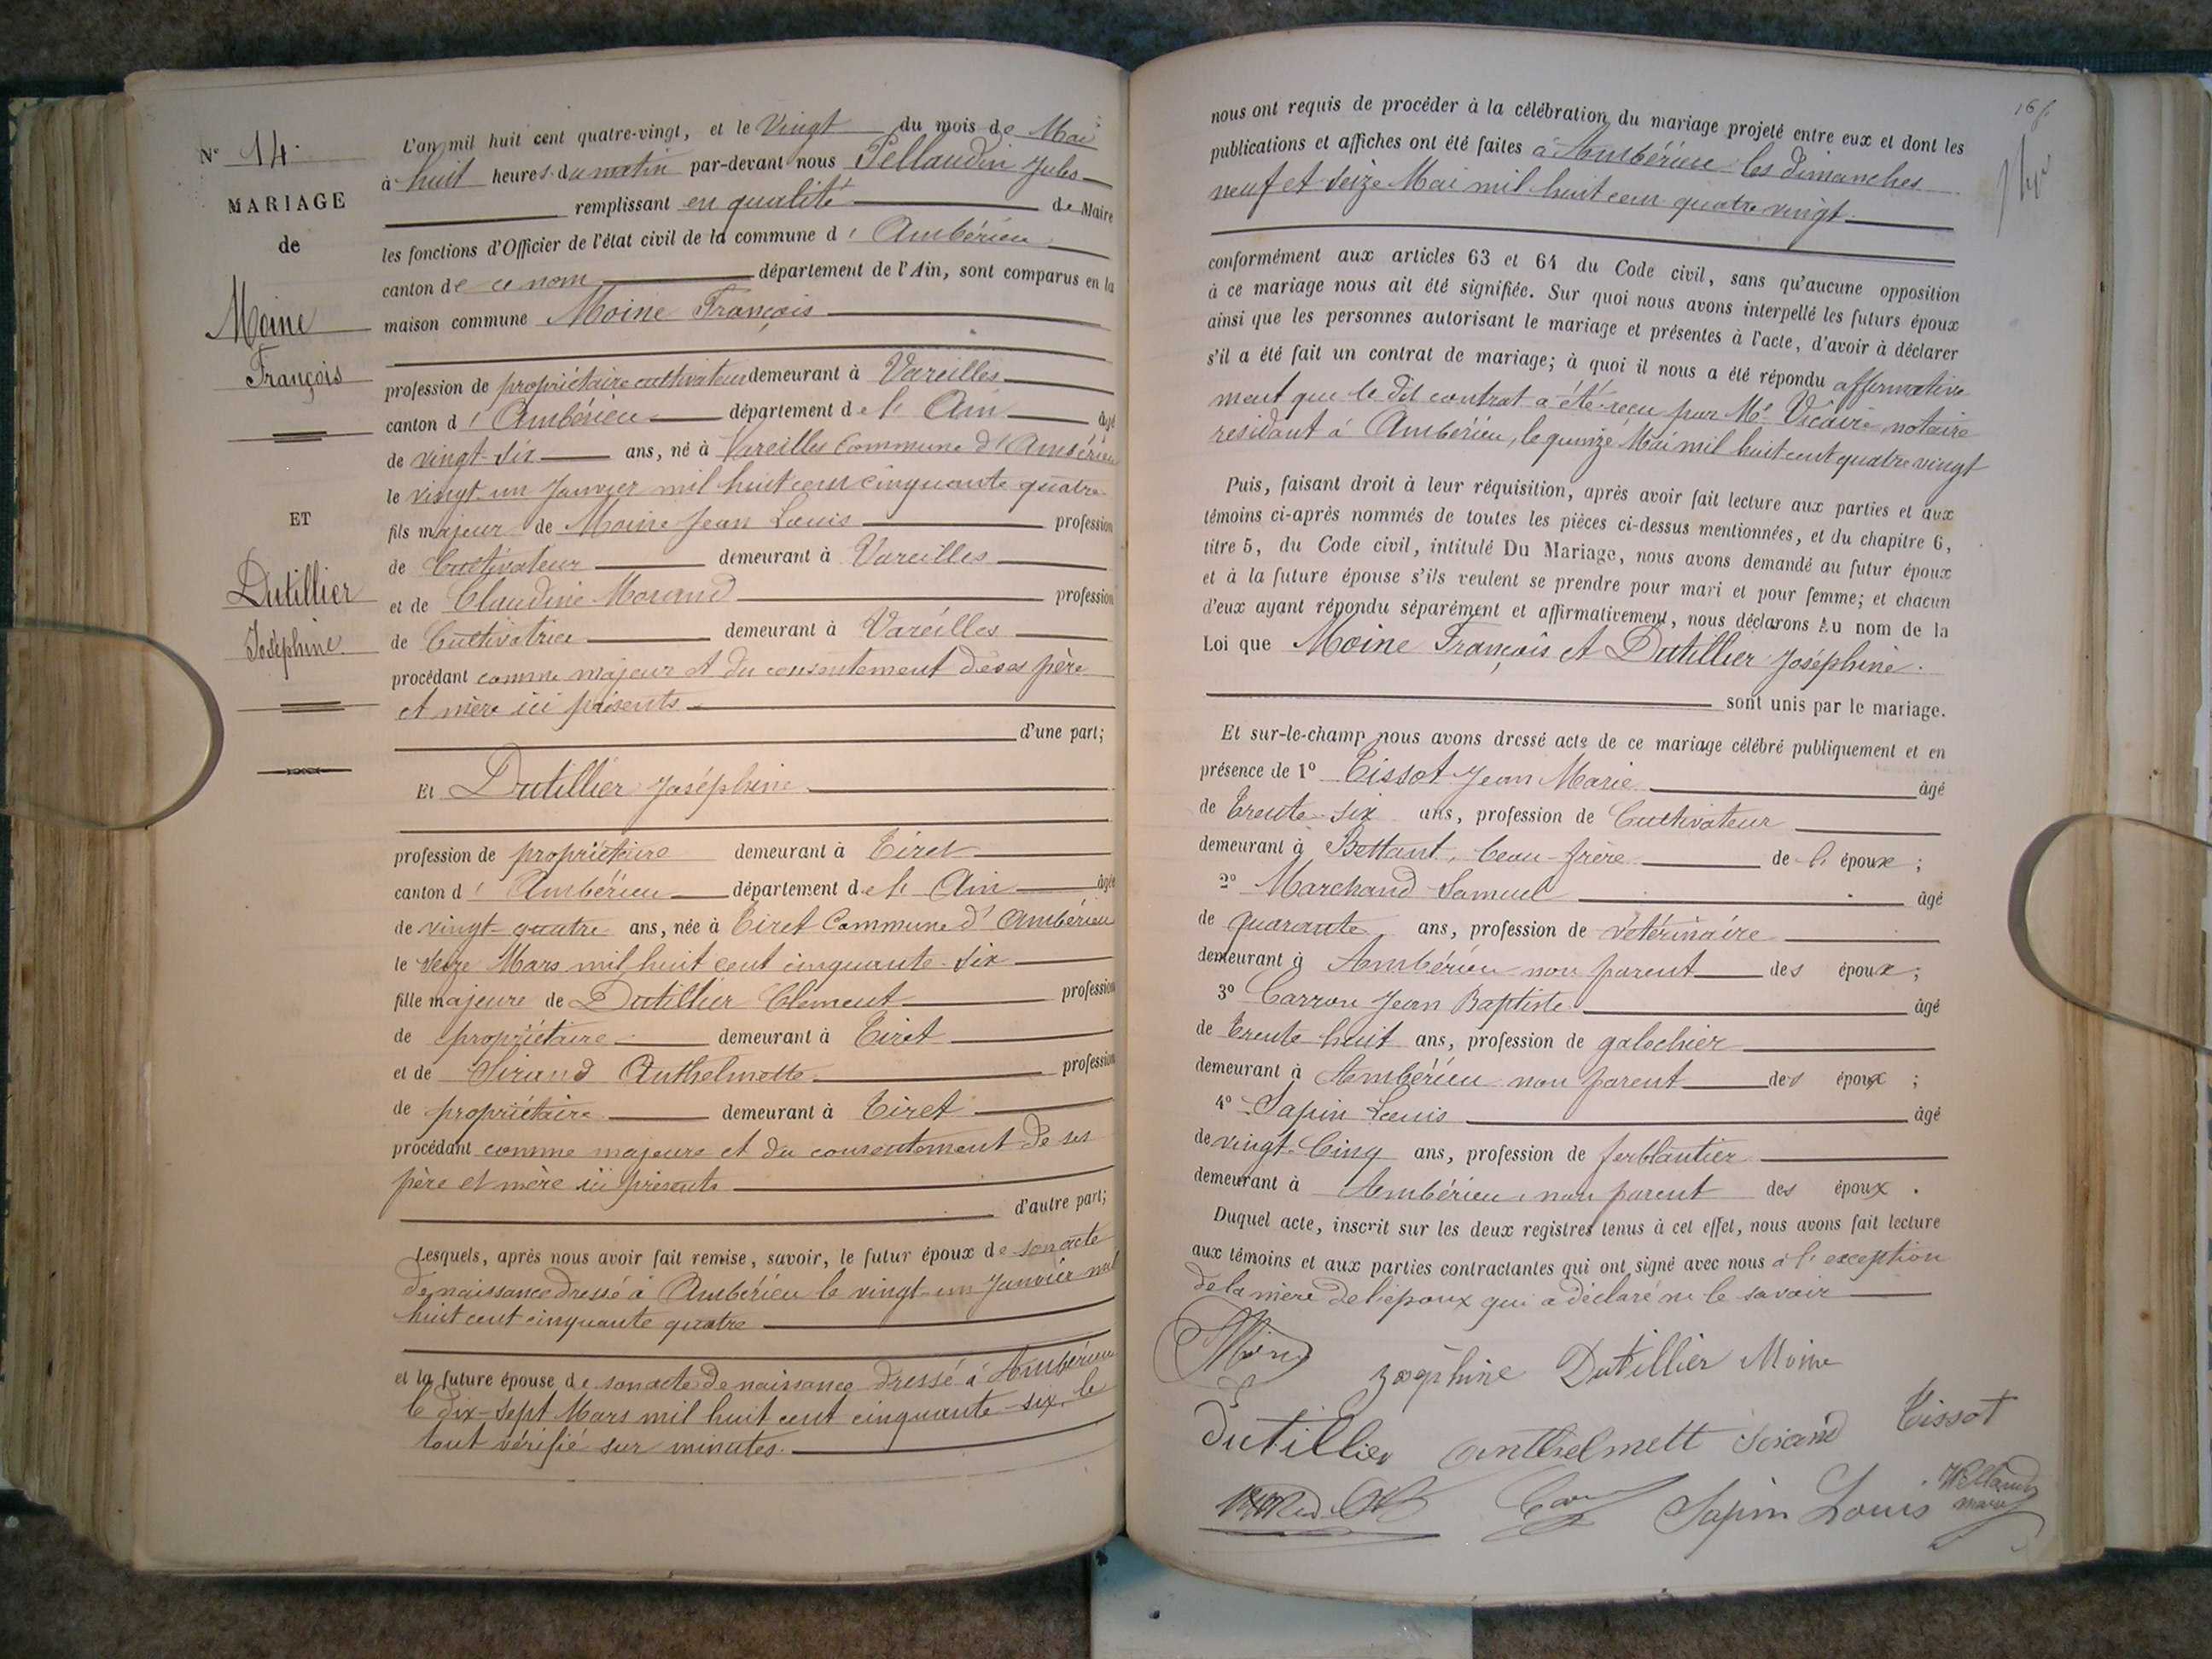 N° 14.
MARIAGE
de
Moine
François
ET
Dutillier
Joséphine
L'an mil huit cent quatre-vingt, et le Vingt du mois de Mai
à huit heures du matin par-devant nous Pellaudin Jules
remplissant en qualité de Maire
les fonctions d'Officier de l'état civil de la commune d' Ambérieu
canton de ce nom département de l'Ain, sont comparus en la
maison commune Moine François
profession de propriétaire cultivateur demeurant à Vareilles
canton d' Ambérieu département de l' Ain âgé
de vingt-six ans, né à Vareilles Commune d'Ambérieu
le vingt-un Janvier mil huit cent cinquante quatre
fils majeur de Moine Jean Louis profession
de Cultivateur demeurant à Vareilles
et de Claudine Morand profession
de Cultivatrice demeurant à Vareilles
procédant comme majeur et du consentement de ses père
et mère ici présents
d'une part;
Et Dutillier Joséphine
profession de propriétaire demeurant à Tiret
canton d' Ambérieu département de l' Ain âgée
de vingt-quatre ans, née à Tiret Commune d' Ambérieu
le seize Mars mil huit cent cinquante-six
fille majeure de Dutillier Clément profession
de propriétaire demeurant à Tiret
et de Sirand Anthelmette profession
de propriétaire demeurant à Tiret
procédant comme majeure et du consentement de ses
père et mère ici présents
d'autre part;
Lesquels, après nous avoir fait remise, savoir, le futur époux de son acte
de naissance dressé à Ambérieu le vingt-un Janvier mil
huit cent cinquante quatre
et la future épouse de son acte de naissance dressé à Ambérieu
le dix-sept Mars mil huit cent cinquante-six, le
tout vérifié sur minutes.
nous ont requis de procéder à la célébration du mariage projeté entre eux et dont les
publications et affiches ont été faites à Ambérieu les dimanches
neuf et seize Mai mil huit cent quatre vingt
conformément aux articles 63 et 64 du Code civil, sans qu'aucune opposition
à ce mariage nous ait été signifiée. Sur quoi nous avons interpellé les futurs époux
ainsi que les personnes autorisant le mariage et présentes à l'acte, d'avoir à déclarer
s'il a été fait un contrat de mariage; à quoi il nous a été répondu affirmative
ment que le dit contrat a été reçu par Me Vicaire notaire
résidant à Ambérieu, le quinze Mai mil huit cent quatre vingt
Puis, faisant droit à leur réquisition, après avoir fait lecture aux parties et aux
témoins ci-après nommés de toutes les pièces ci-dessus mentionnées, et du chapitre 6,
titre 5, du Code civil, intitulé Du Mariage, nous avons demandé au futur époux
et à la future épouse s'ils veulent se prendre pour mari et pour femme; et chacun
d'eux ayant répondu séparément et affirmativement, nous déclarons au nom de la
Loi que Moine François et Dutillier Joséphine.
sont unis par le mariage.
Et sur-le-champ nous avons dressé acte de ce mariage célébré publiquement et en
présence de 1° Tissot Jean Marie âgé
de Trente-six ans, profession de Cultivateur
demeurant à Bettant, beau-frère de l' époux;
2° Marchand Samuel âgé
de quarante ans, profession de vétérinaire
demeurant à Ambérieu non parent des époux;
3° Carron Jean Baptiste âgé
de Trente-huit ans, profession de galochier
demeurant à Ambérieu non parent des époux;
4° Sapin Louis âgé
de vingt-Cinq ans, profession de ferblantier
demeurant à Ambérieu, non parent des époux.
Duquel acte, inscrit sur les deux registres tenus à cet effet, nous avons fait lecture
aux témoins et aux parties contractantes qui ont signé avec nous à l'exception
de la mère de l'époux qui a déclaré ne le savoir
Josephine Dutillier Moine
Dutillier Anthelmett Sirand Tissot
Sapin Louis